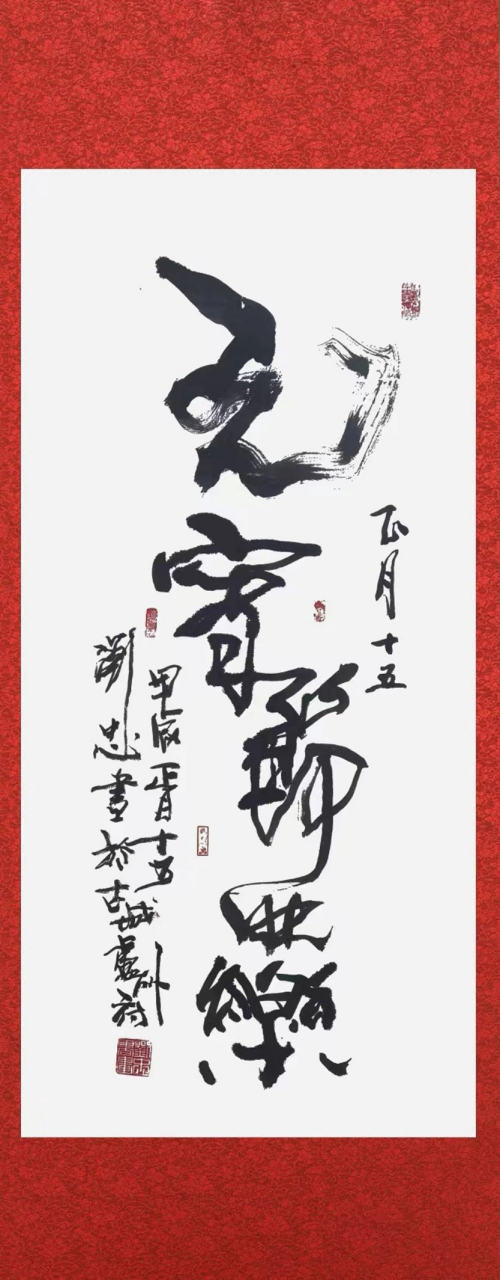 正月十五
元宵節快樂
甲辰正月十五
劉忠書於古城廬州府